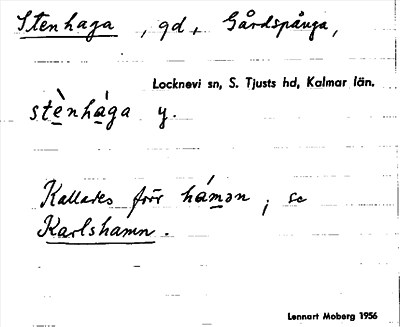 Stenhaga, gd, Gårdspånga,
Locknevi sn, S. Tjusts hd, Kalmar län.
stènhága y.
Kallades förr hámən; se
Karlshamn.
Lennart Moberg 1956